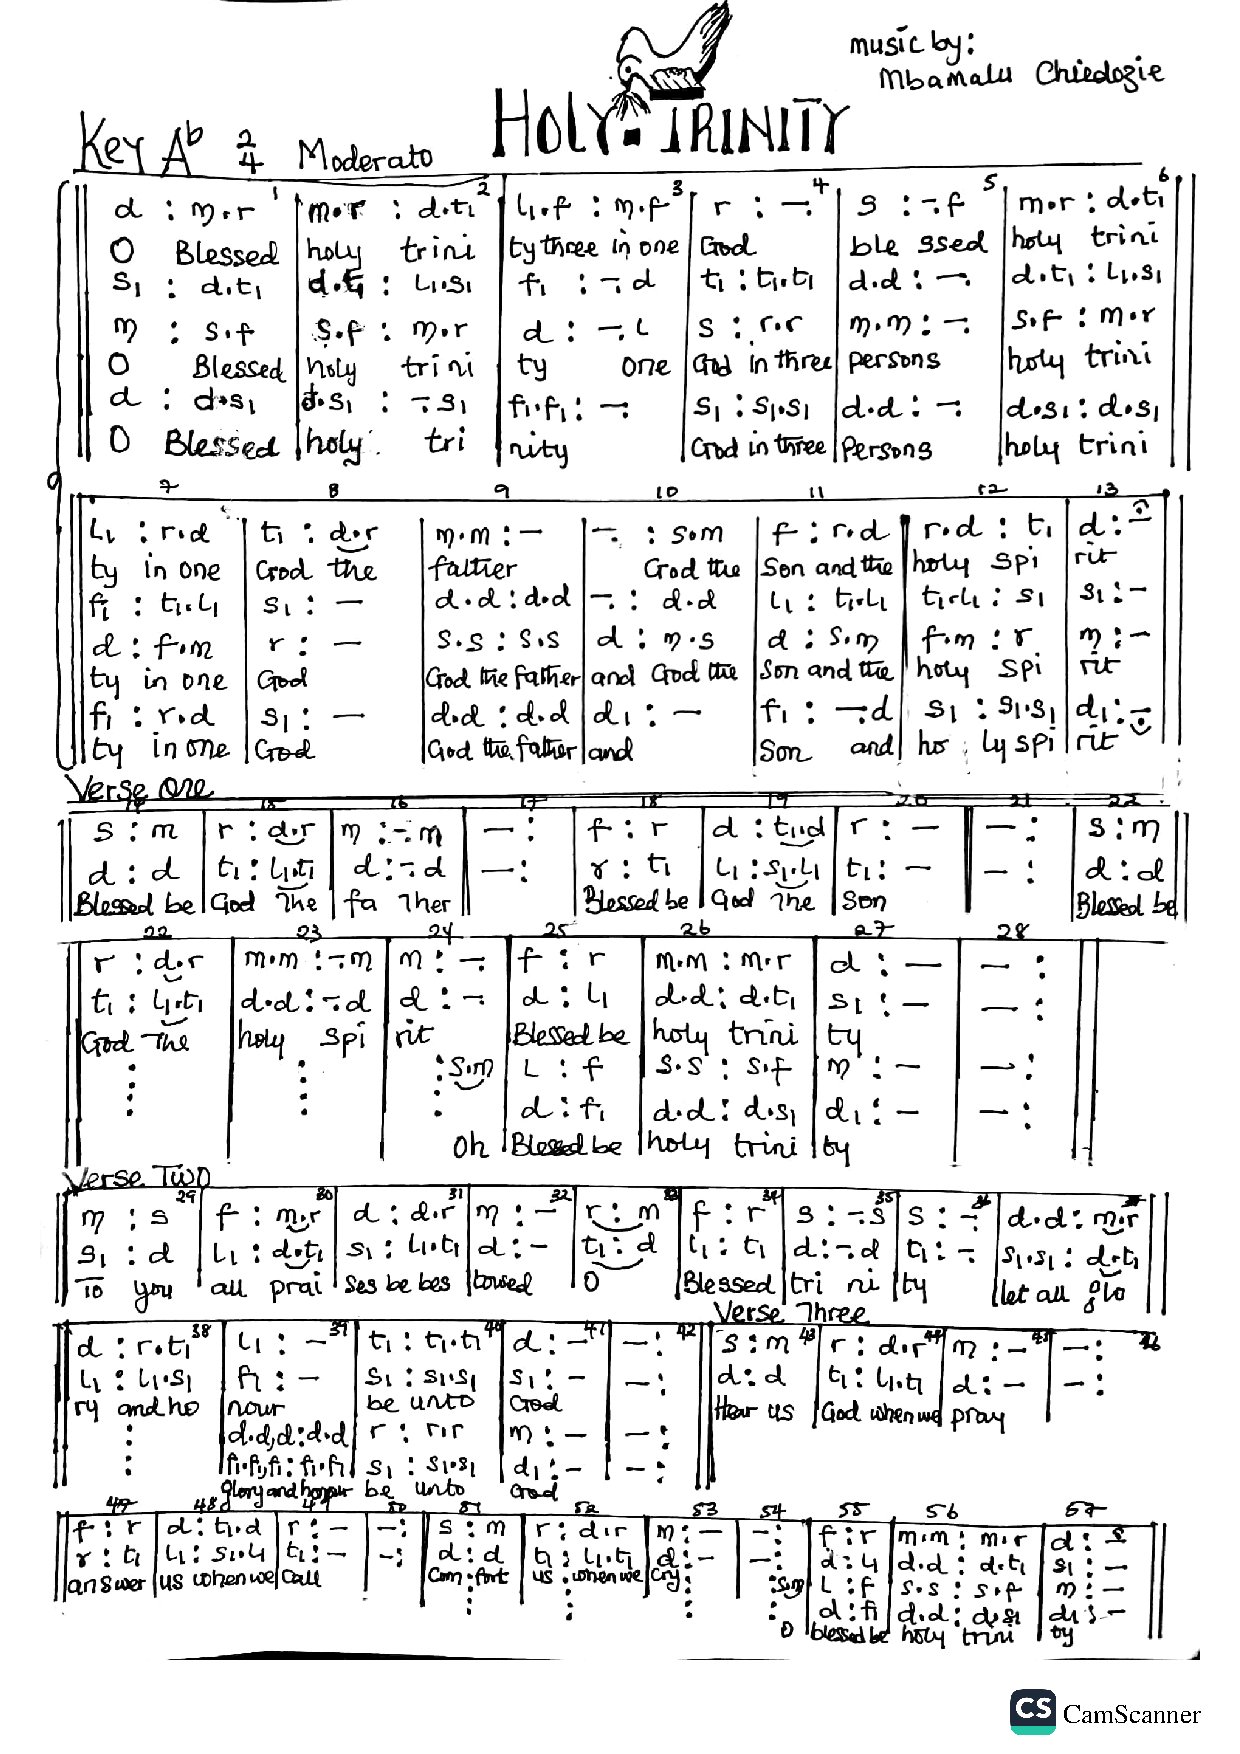 music by:
Mbamalu Chiedozie
HOLY TRINITY
Key Ab 2/4 Moderato
1 2 3 4 5 6
d : m.r | m.r : d.t₁ | L₁.f : m.f | r : -. | s : -.f | m.r : d.t₁
O Blessed | holy trini | ty three in one | God | ble ssed | holy trini
s₁ : d.t₁ | d.t₁ : L₁.s₁ | f₁ : -. d | t₁ : t₁.t₁ | d.d : -. | d.t₁ : L₁.s₁
m : s.f | s.f : m.r | d : -. L | s : r.r | m.m : -. | s.f : m.r
O Blessed | holy trini | ty one | God in three | persons | holy trini
d : d.s₁ | d.s₁ : -. s₁ | f₁.f₁ : -. | s₁ : s₁.s₁ | d.d : -. | d.s₁ : d.s₁
O Blessed | holy tri | nity | God in three | Persons | holy trini
7 8 9 10 11 12 13
L₁ : r.d | t₁ : d.r | m.m : — | -. : s.m | f : r.d | r.d : t₁ | d : —
ty in one | God the | father | God the | Son and the | holy spi | rit
f₁ : t₁.L₁ | s₁ : — | d.d : d.d | -. : d.d | L₁ : t₁.L₁ | t₁.L₁ : s₁ | s₁ : —
d : f.m | r : — | s.s : s.s | d : m.s | d : s.m | f.m : r | m : —
ty in one | God | God the father | and God the | Son and the | holy spi | rit
f₁ : r.d | s₁ : — | d.d : d.d | d₁ : — | f₁ : -. d | s₁ : s₁.s₁ | d₁ : —
ty in one | God | God the father | and | Son and | ho ly spi | rit
Verse One
15 16 17 18 19 20 21 22
s : m | r : d.r | m : -. m | — : | f : r | d : t₁.d | r : — | — : | s : m
d : d | t₁ : L₁.t₁ | d : -. d | — : | r : t₁ | L₁ : s₁.L₁ | t₁ : — | — : | d : d
Blessed be | God The | fa Ther | Blessed be | God The | Son | Blessed be
22 23 24 25 26 27 28
r : d.r | m.m : -. m | m : -. | f : r | m.m : m.r | d : — | — :
t₁ : L₁.t₁ | d.d : -. d | d : -. | d : L₁ | d.d : d.t₁ | s₁ : — | — :
God The | holy spi | rit | Blessed be | holy trini | ty
: | : | : s.m | L : f | s.s : s.f | m : — | — :
: | : | : | d : f₁ | d.d : d.s₁ | d₁ : — | — :
Oh | Blessed be | holy trini | ty
Verse Two
29 30 31 32 33 34 35 36
m : s | f : m.r | d : d.r | m : — | r : m | f : r | s : -. s | s : -. | d.d : m.r
s₁ : d | L₁ : d.t₁ | s₁ : L₁.t₁ | d : — | t₁ : d | L₁ : t₁ | d : -. d | t₁ : -. | s₁.s₁ : d.t₁
To you | all prai | ses be bes | towed | O | Blessed | tri ni | ty | let all glo
Verse Three
38 39 40 41 42 43 44 45 46
d : r.t₁ | L₁ : — | t₁ : t₁.t₁ | d : — | — : | s : m | r : d.r | m : — | — :
L₁ : L₁.s₁ | f₁ : — | s₁ : s₁.s₁ | s₁ : — | — : | d : d | t₁ : L₁.t₁ | d : — | — :
ry and ho | nour | be unto | God | Hear us | God when we | pray
: | d.d,d : d.d | r : r.r | m : — | — :
: | f₁.f₁,f₁ : f₁.f₁ | s₁ : s₁.s₁ | d₁ : — | — :
glory and honour | be unto | God
47 48 49 50 51 52 53 54 55 56 57
f : r | d : t₁.d | r : — | — : | s : m | r : d.r | m : — | — : | f : r | m.m : m.r | d : —
r : t₁ | L₁ : s₁.L₁ | t₁ : — | — : | d : d | t₁ : L₁.t₁ | d : — | — : | d : L₁ | d.d : d.t₁ | s₁ : —
answer | us when we | call | Com fort | us when we | cry | : s.m | L : f | s.s : s.f | m : —
: | : | : | : | d : f₁ | d.d : d.s₁ | d₁ : —
O | blessed be | holy trini | ty
CS CamScanner